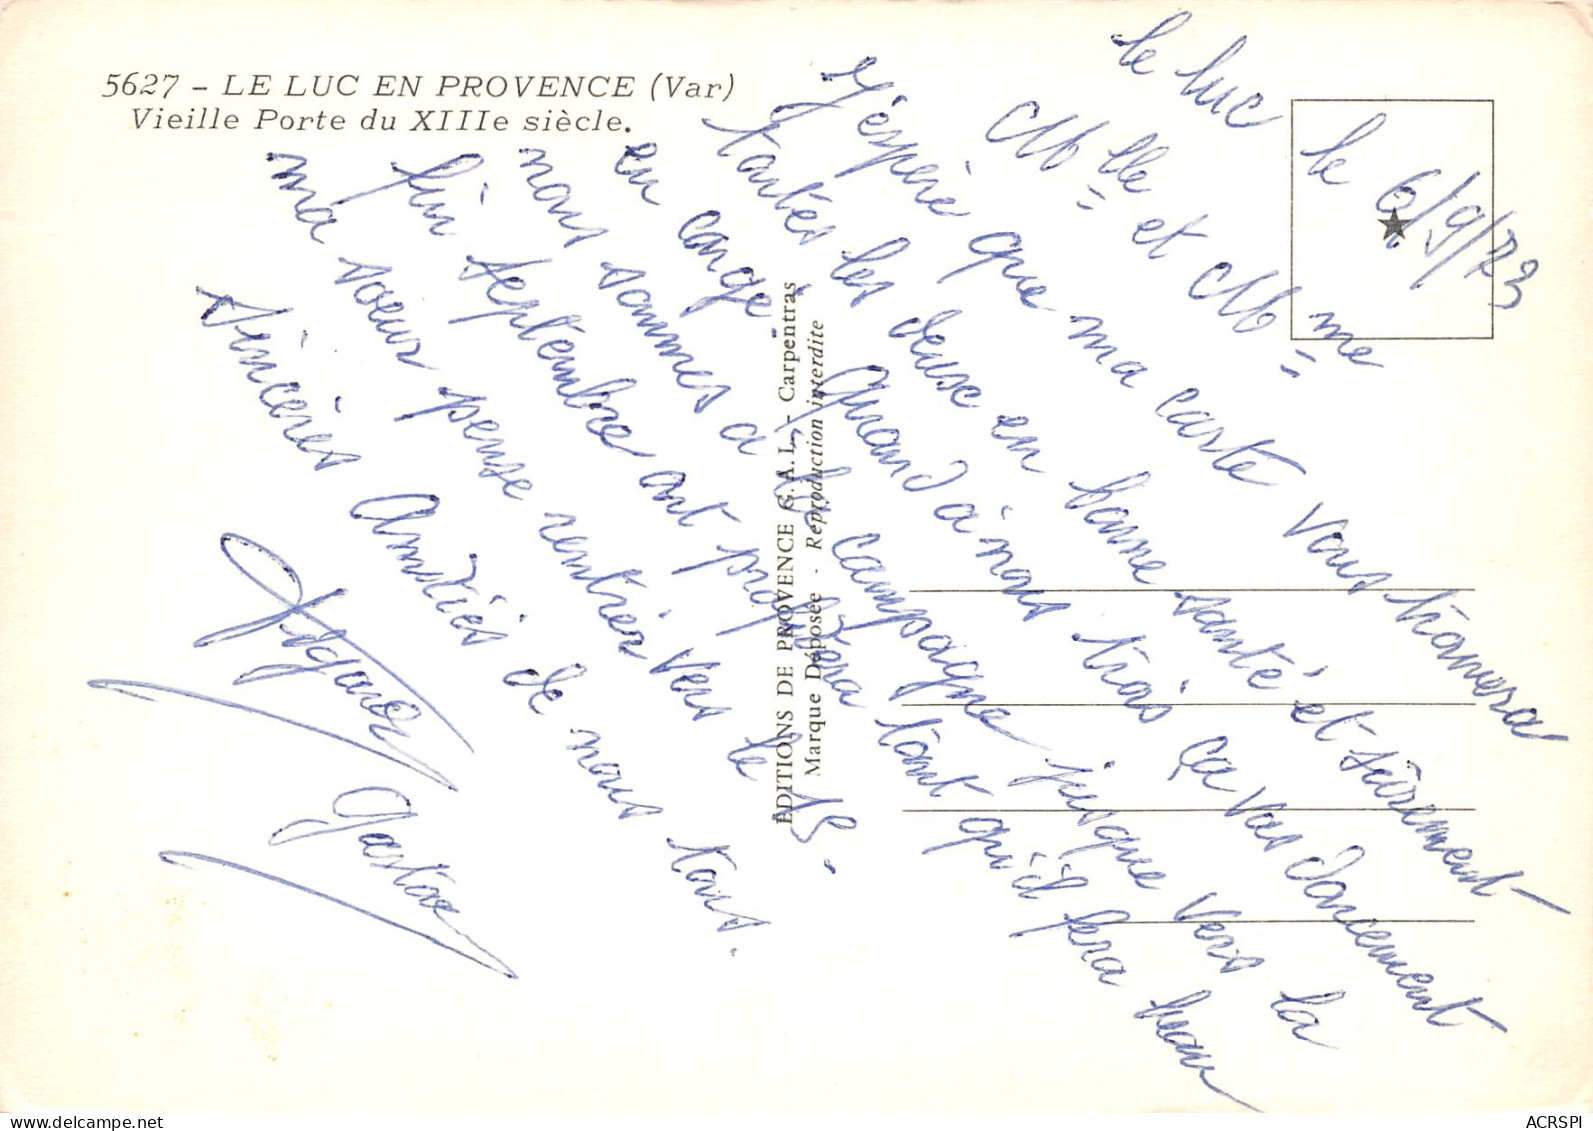 5627 - LE LUC EN PROVENCE (Var)
Vieille Porte du XIIIe siècle.
le Luc
le 6/9/73
Mlle et Mme
J'éspère que ma carte vous trouvera
toutes les deux en bonne santé et surement
en congé. Quand à nous trois ça vas doucement
nous sommes a la campagne jusque vers la
fin septembre ont profitera tant qu'il fera beau
ma soeur pense rentrer vers le 15.
Sincères Amitiés de nous tous.
Gaston
ÉDITIONS DE PROVENCE G.A.L. - Carpentras
Marque Déposée - Reproduction interdite
delcampe.net
ACRSPI